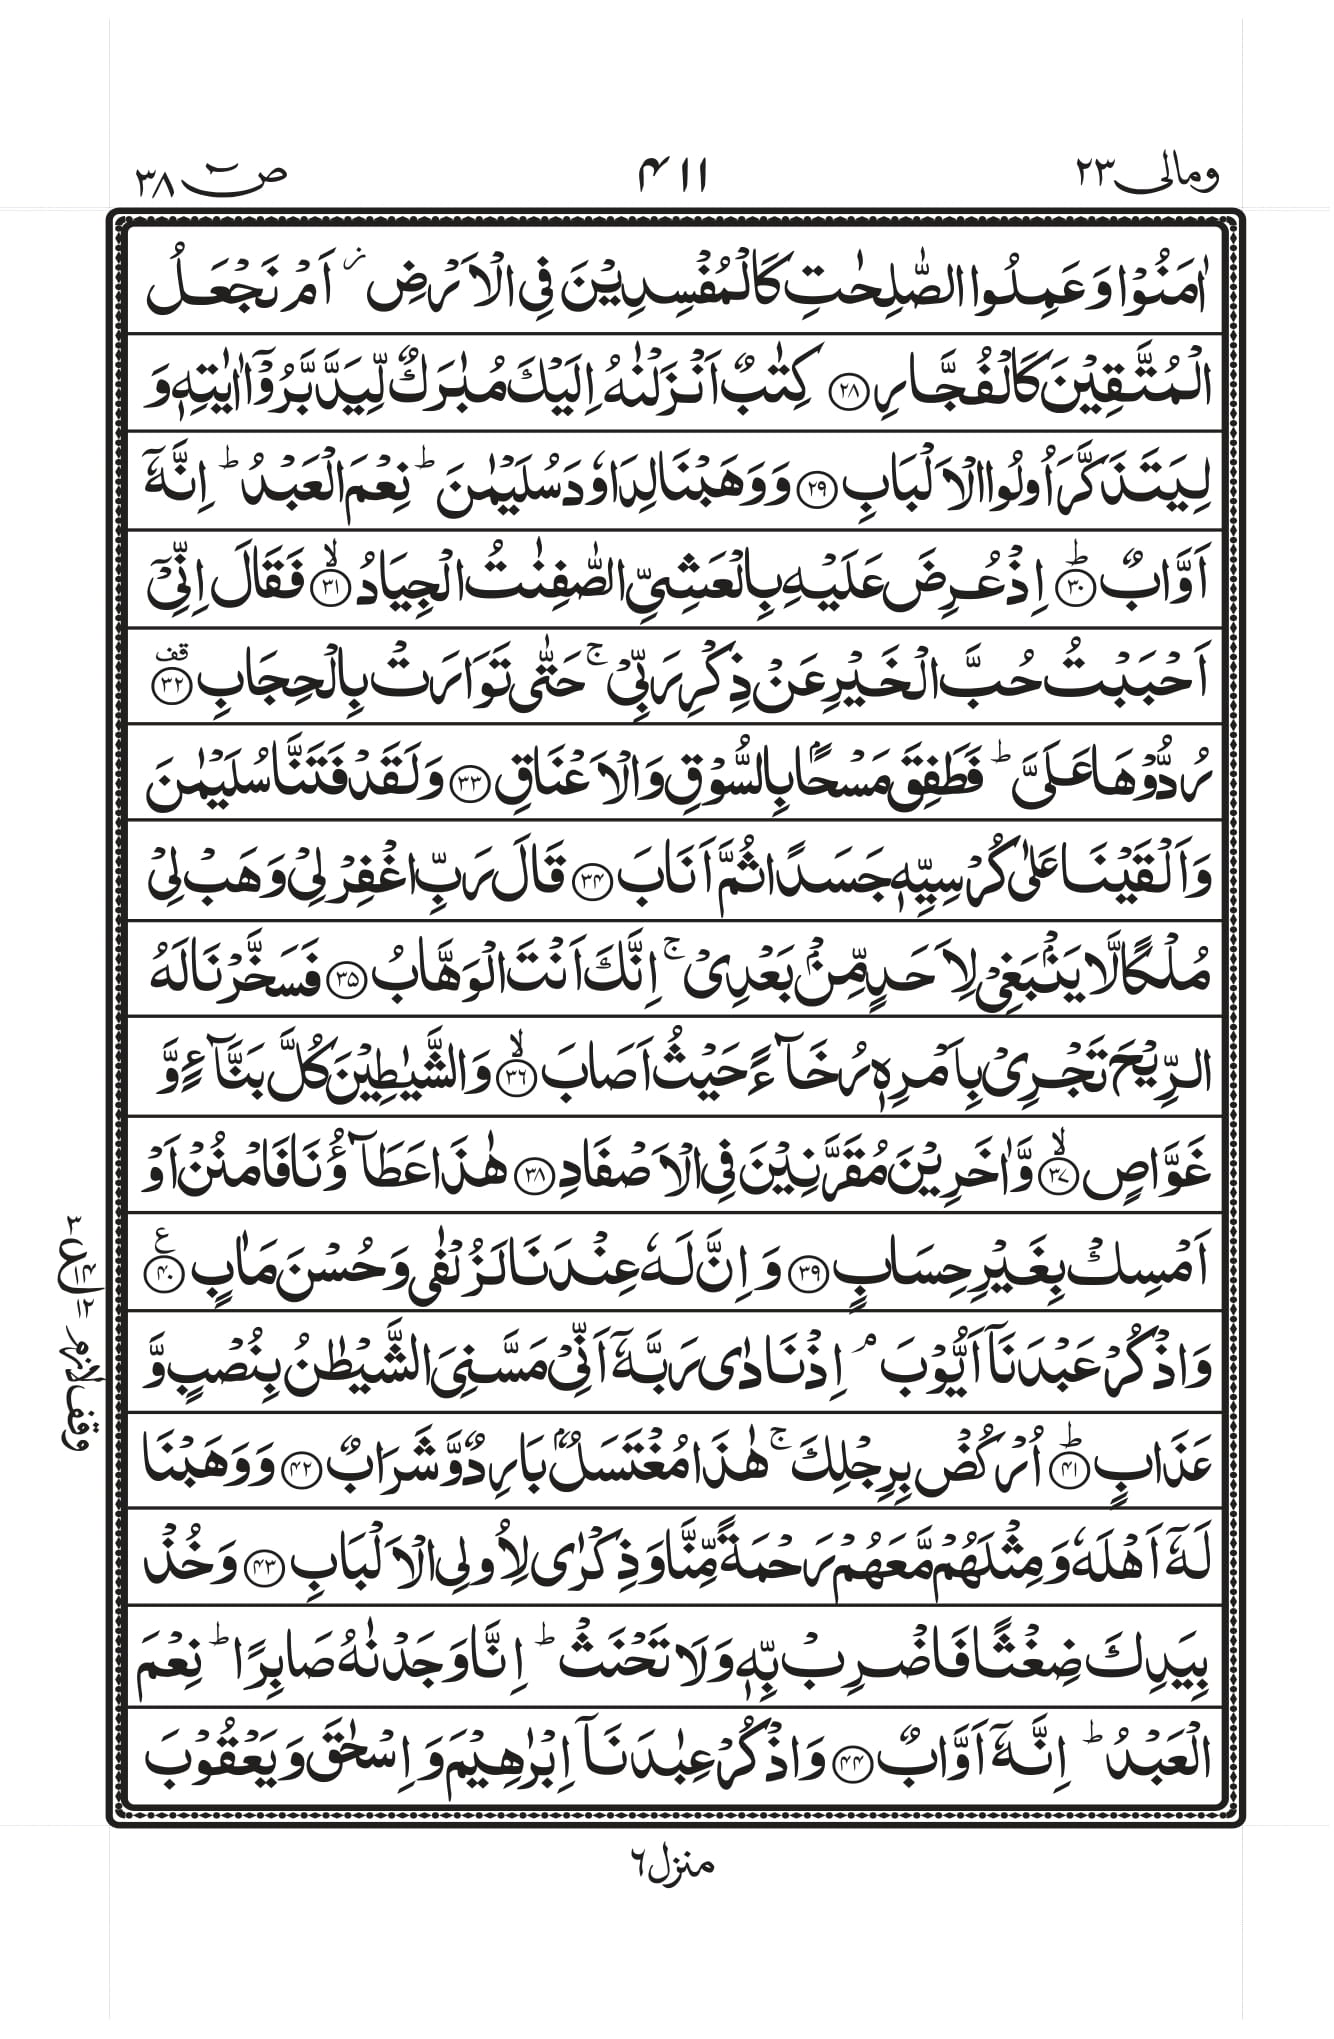 ومالی ٢٣
٤١١
صٓ ٣٨
اٰمَنُوۡا وَعَمِلُوا الصّٰلِحٰتِ كَالۡمُفۡسِدِيۡنَ فِى الۡاَرۡضِ ز اَمۡ نَجۡعَلُ
الۡمُتَّقِيۡنَ كَالۡفُجَّارِ ﴿۲۸﴾ كِتٰبٌ اَنۡزَلۡنٰهُ اِلَيۡكَ مُبٰرَكٌ لِّيَدَّبَّرُوۡۤا اٰيٰتِهٖ وَ
لِيَتَذَكَّرَ اُولُوا الۡاَلۡبَابِ ﴿۲۹﴾ وَوَهَبۡنَا لِدَاوٗدَ سُلَيۡمٰنَ ؕ نِعۡمَ الۡعَبۡدُ ؕ اِنَّهٗۤ
اَوَّابٌ ؕ ﴿۳۰﴾ اِذۡ عُرِضَ عَلَيۡهِ بِالۡعَشِىِّ الصّٰفِنٰتُ الۡجِيَادُ ۙ ﴿۳۱﴾ فَقَالَ اِنِّىۡۤ
اَحۡبَبۡتُ حُبَّ الۡخَيۡرِ عَنۡ ذِكۡرِ رَبِّىۡ ۚ حَتّٰى تَوَارَتۡ بِالۡحِجَابِ قف ﴿۳۲﴾
رُدُّوۡهَا عَلَىَّ ؕ فَطَفِقَ مَسۡحًۢا بِالسُّوۡقِ وَالۡاَعۡنَاقِ ﴿۳۳﴾ وَلَقَدۡ فَتَنَّا سُلَيۡمٰنَ
وَاَلۡقَيۡنَا عَلٰى كُرۡسِيِّهٖ جَسَدًا ثُمَّ اَنَابَ ﴿۳۴﴾ قَالَ رَبِّ اغۡفِرۡ لِىۡ وَهَبۡ لِىۡ
مُلۡكًا لَّا يَنۡۢبَغِىۡ لِاَحَدٍ مِّنۡۢ بَعۡدِىۡ ۚ اِنَّكَ اَنۡتَ الۡوَهَّابُ ﴿۳۵﴾ فَسَخَّرۡنَا لَهُ
الرِّيۡحَ تَجۡرِىۡ بِاَمۡرِهٖ رُخَآءً حَيۡثُ اَصَابَ ۙ ﴿۳۶﴾ وَالشَّيٰطِيۡنَ كُلَّ بَنَّآءٍ وَّ
غَوَّاصٍ ۙ ﴿۳۷﴾ وَّاٰخَرِيۡنَ مُقَرَّنِيۡنَ فِى الۡاَصۡفَادِ ﴿۳۸﴾ هٰذَا عَطَآؤُنَا فَامۡنُنۡ اَوۡ
اَمۡسِكۡ بِغَيۡرِ حِسَابٍ ﴿۳۹﴾ وَاِنَّ لَهٗ عِنۡدَنَا لَزُلۡفٰى وَحُسۡنَ مَاٰبٍ ع ﴿۴۰﴾
ع ٣ ١٤ ١٢
وَاذۡكُرۡ عَبۡدَنَاۤ اَيُّوۡبَ ۘ اِذۡ نَادٰى رَبَّهٗۤ اَنِّىۡ مَسَّنِىَ الشَّيۡطٰنُ بِنُصۡبٍ وَّ
وقف لازم
عَذَابٍ ؕ ﴿۴۱﴾ اُرۡكُضۡ بِرِجۡلِكَ ۚ هٰذَا مُغۡتَسَلٌۢ بَارِدٌ وَّشَرَابٌ ﴿۴۲﴾ وَوَهَبۡنَا
لَهٗۤ اَهۡلَهٗ وَمِثۡلَهُمۡ مَّعَهُمۡ رَحۡمَةً مِّنَّا وَذِكۡرٰى لِاُولِى الۡاَلۡبَابِ ﴿۴۳﴾ وَخُذۡ
بِيَدِكَ ضِغۡثًا فَاضۡرِبۡ بِّهٖ وَلَا تَحۡنَثۡ ؕ اِنَّا وَجَدۡنٰهُ صَابِرًا ؕ نِعۡمَ
الۡعَبۡدُ ؕ اِنَّهٗۤ اَوَّابٌ ﴿۴۴﴾ وَاذۡكُرۡ عِبٰدَنَاۤ اِبۡرٰهِيۡمَ وَاِسۡحٰقَ وَيَعۡقُوۡبَ
منزل ٦